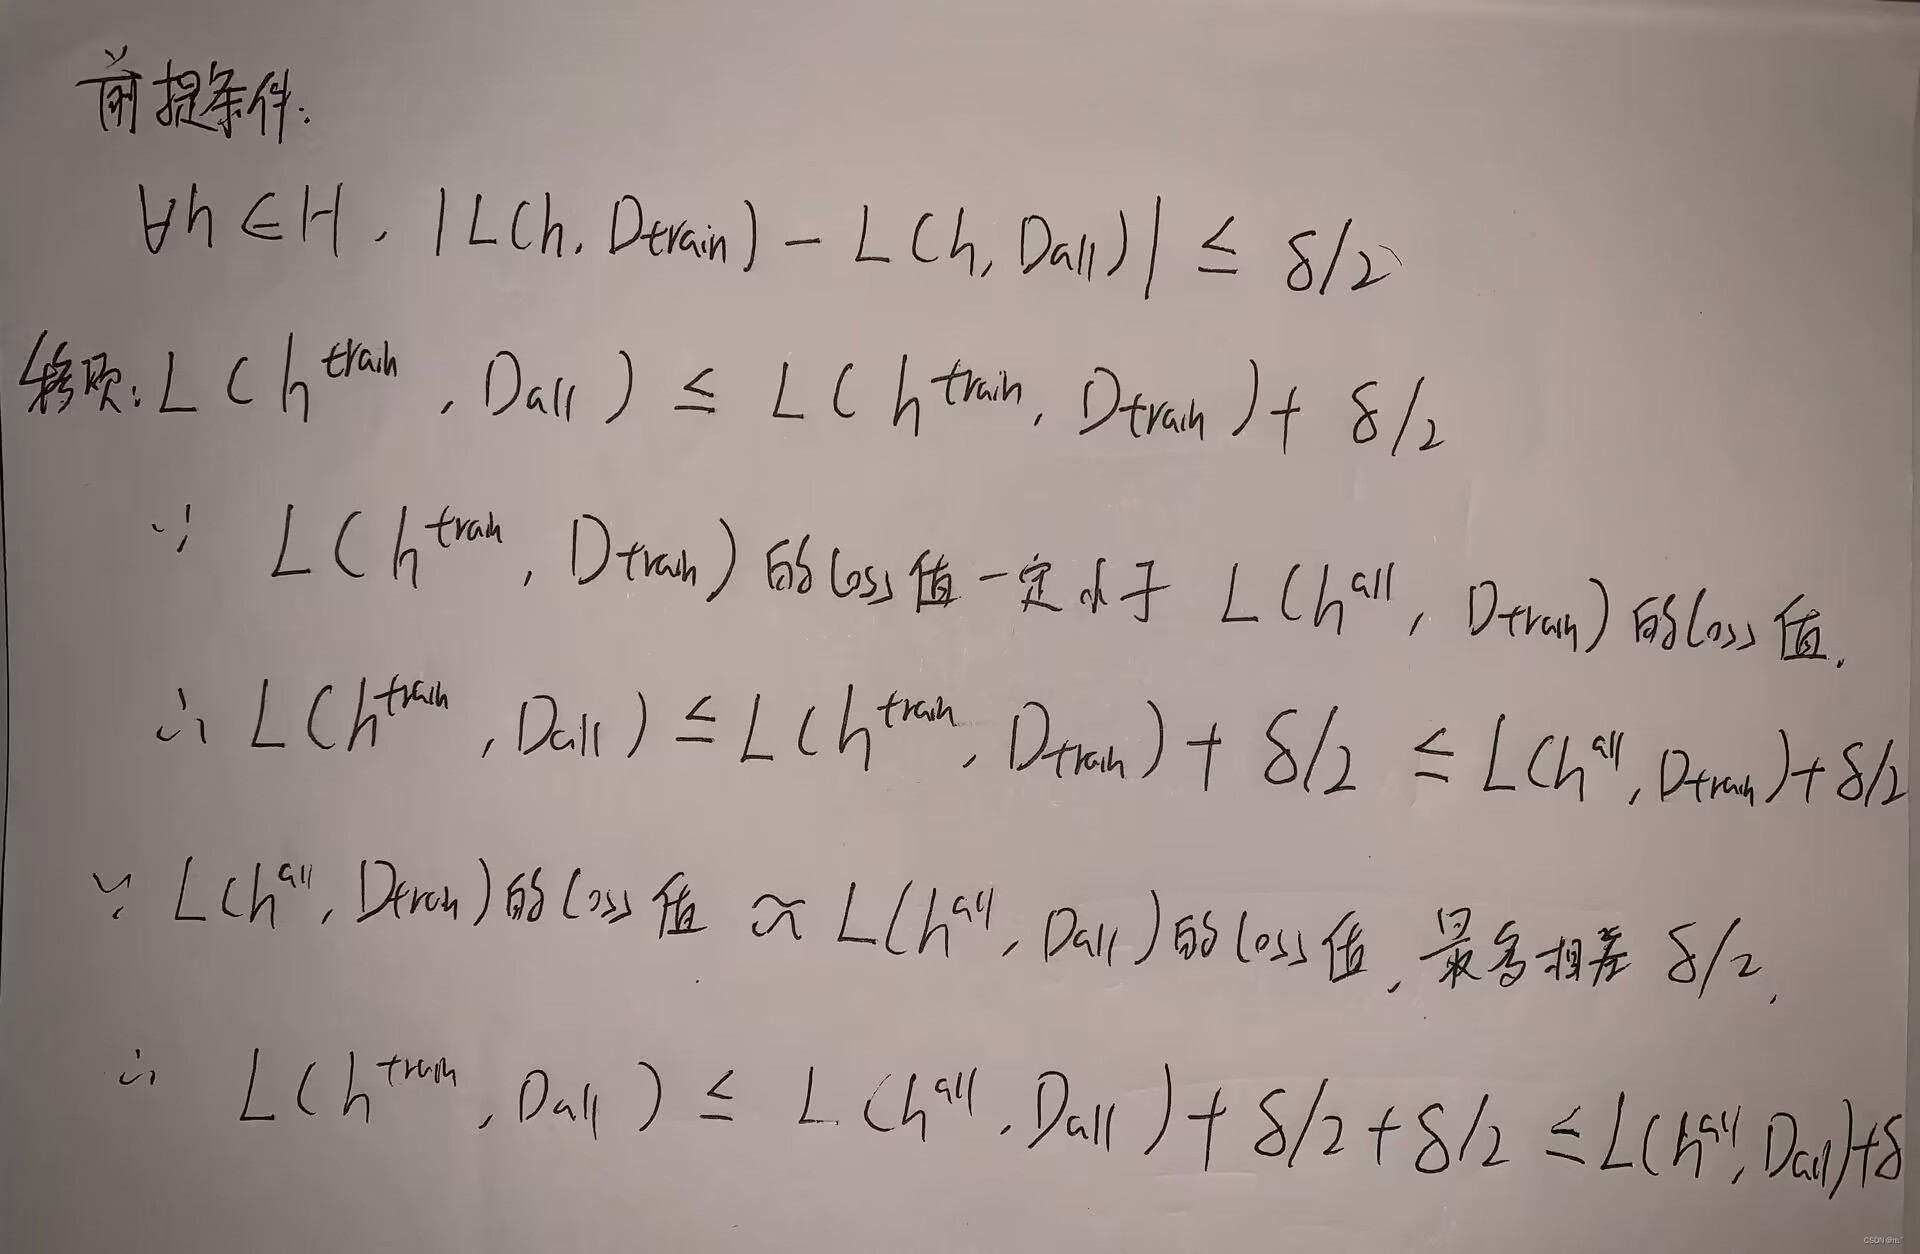 前提条件:
∀h∈H, |L(h, Dtrain) - L(h, Dall)| ≤ δ/2
移项: L(h^train, Dall) ≤ L(h^train, Dtrain) + δ/2
∵ L(h^train, Dtrain)的loss值一定小于 L(h^all, Dtrain)的loss值.
∴ L(h^train, Dall) ≤ L(h^train, Dtrain) + δ/2 ≤ L(h^all, Dtrain) + δ/2
∵ L(h^all, Dtrain)的loss值 ≈ L(h^all, Dall)的loss值, 最多相差 δ/2,
∴ L(h^train, Dall) ≤ L(h^all, Dall) + δ/2 + δ/2 ≤ L(h^all, Dall) + δ